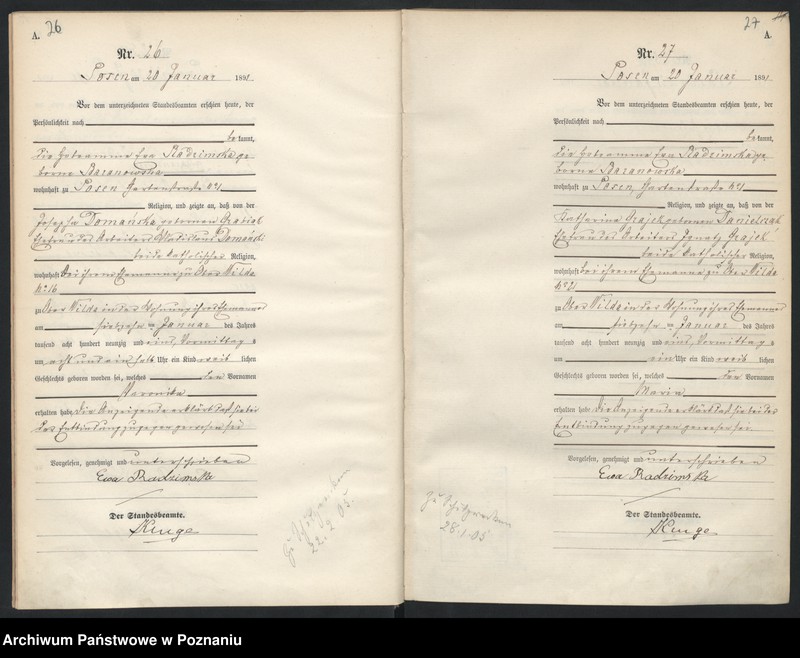 A. 26
Nr. 26
Posen am 20 Januar 1891
Vor dem unterzeichneten Standesbeamten erschien heute, der
Persönlichkeit nach
be kannt,
die Hebamme Eva Radzimska ge
borne Baranowska
wohnhaft zu Posen Gartenstraße
Religion, und zeigte an, daß von der
Josepha Domańska geborenen
Ehefrau des Arbeiters Domański
beide katholischer Religion,
wohnhaft bei ihrem Ehemanne zu Ober Wilda
No 16
zu Ober Wilda in der Wohnung ihres Ehemannes
am siebzehn ten Januar des Jahres
tausend acht hundert neunzig und eins, Vormittags
um acht und ein halb Uhr ein Kind weib lichen
Geschlechts geboren worden sei, welches den Vornamen
Veronika
erhalten habe. Die Anzeigende erklärt daß sie bei
der Entbindung zugegen gewesen sei
Vorgelesen, genehmigt und unterschrieben
Ewa Radzimska
Der Standesbeamte.
22.  05.
27 A.
Nr. 27
Posen am 20 Januar 1891
Vor dem unterzeichneten Standesbeamten erschien heute, der
Persönlichkeit nach
be kannt,
die Hebamme Eva Radzimska ge
borne Baranowska
wohnhaft zu Posen, Gartenstraße
Religion, und zeigte an, daß von der
Katharina Grajek geborenen Danielczak
Ehefrau des Arbeiters Ignatz Grajek
beide katholischer Religion,
wohnhaft bei ihrem Ehemanne zu Ober Wilda
No 21
zu Ober Wilda in der Wohnung ihres Ehemannes
am siebzehn ten Januar des Jahres
tausend acht hundert neunzig und eins, Vormittags
um ein Uhr ein Kind weib lichen
Geschlechts geboren worden sei, welches den Vornamen
Maria
erhalten habe. Die Anzeigende erklärt daß sie bei der
Entbindung zugegen gewesen sei
Vorgelesen, genehmigt und unterschrieben
Ewa Radzimska
Der Standesbeamte.
28.1.05
Archiwum Państwowe w Poznaniu